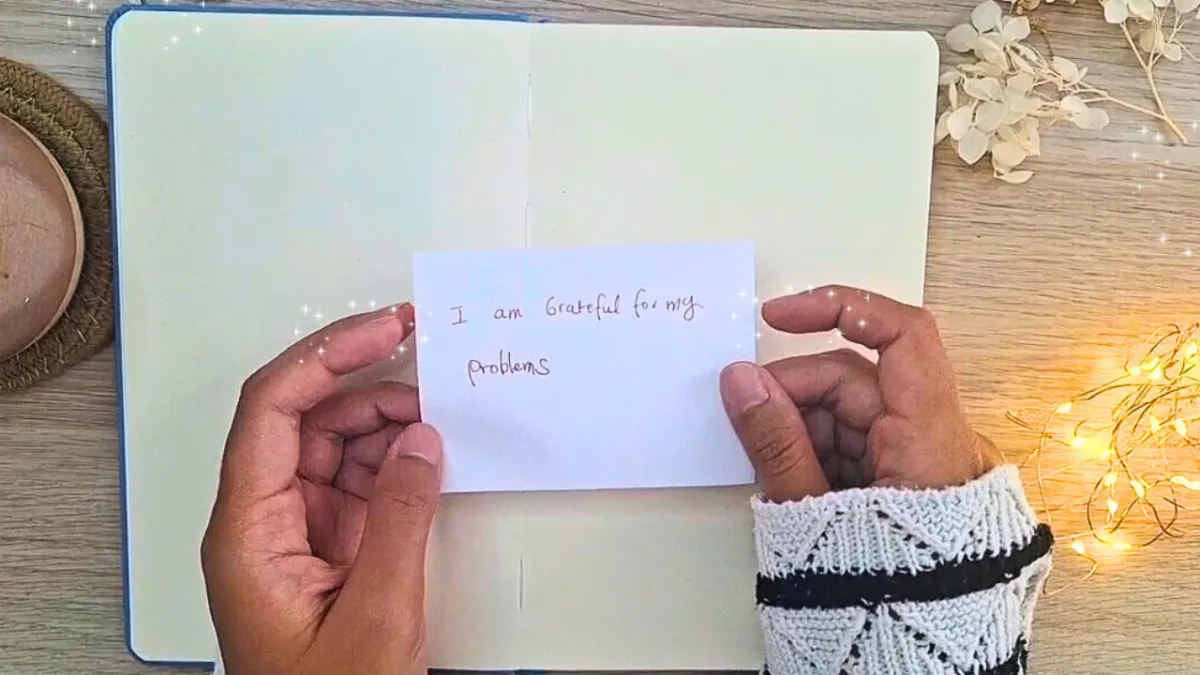 I am Grateful for my
problems